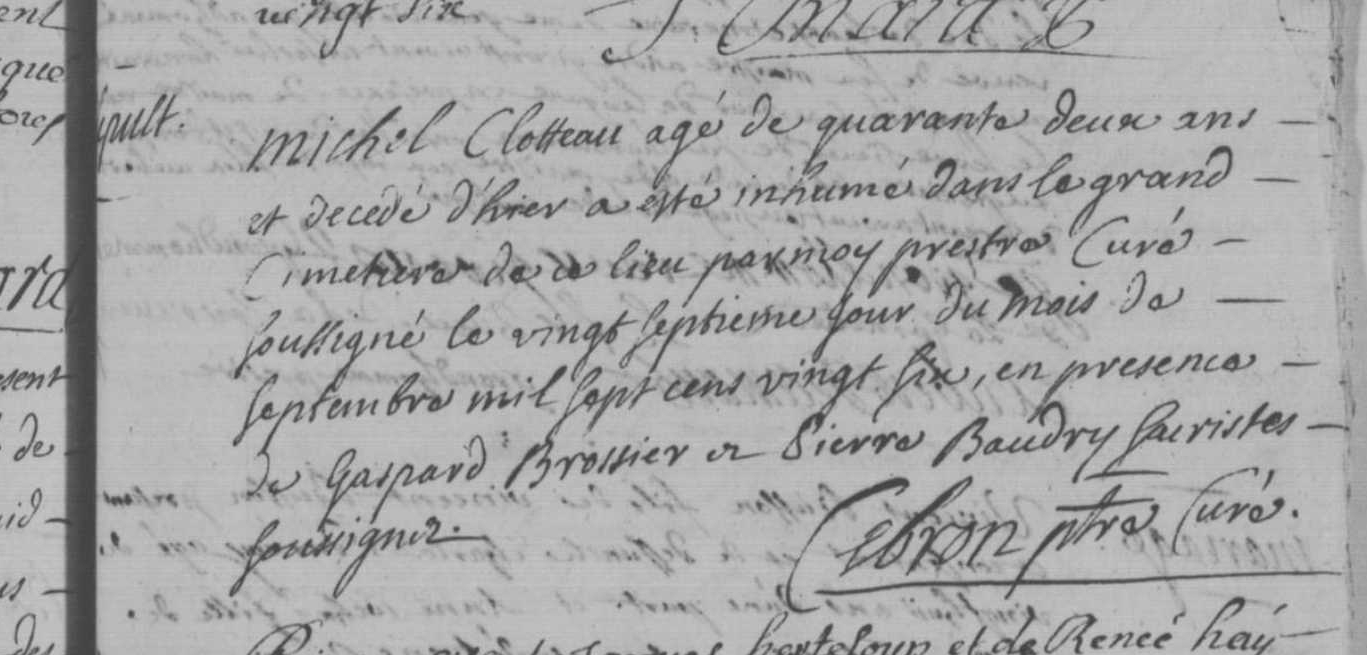 vingt six
pult.
michel Clotteau agé de quarante deux ans
et decedé d'hier a esté inhumé dans le grand
Cimetiere de ce lieu par moy prestre Curé
soussigné le vingt septieme jour du mois de
septembre mil sept cens vingt six, en presence
de Gaspard Brossier et Pierre Baudry sacristes
soussignez.
Cebron ptre Curé.
et de Renée haÿ